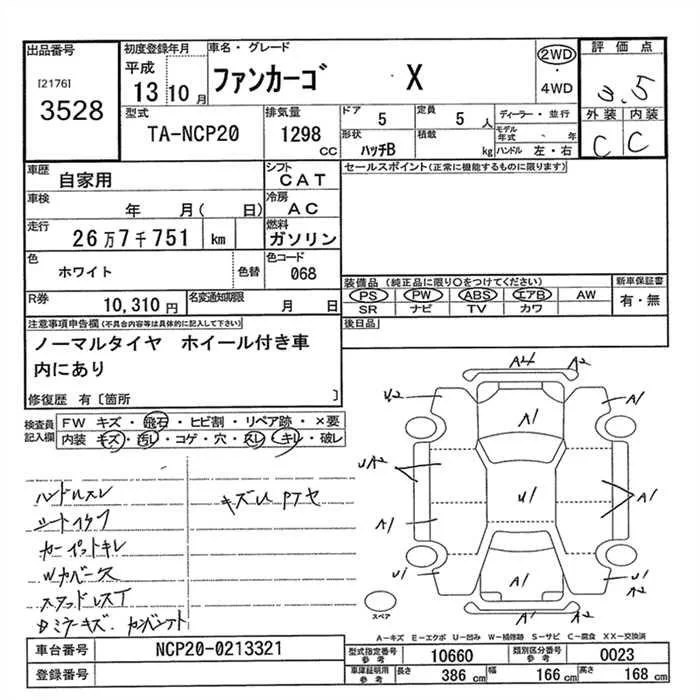 出品番号
[2176]
3528
初度登録年月
平成
13 10 月
車名・グレード
ファンカーゴ X
2WD
・
4WD
評価点
3.5
外装 内装
C C
型式
TA-NCP20
排気量
1298
CC
ドア
5
定員
5 人
形状
ハッチB
積載
kg
ディーラー・並行
モデル年式 ・ 年
ハンドル 左・右
車歴
自家用
シフト
CAT
車検
年 月( 日)
冷房
AC
走行
26万7千751 km
燃料
ガソリン
色
ホワイト
色替
色コード
068
R券
10,310 円
名変通知期限
月 日
セールスポイント(正常に機能するものに限ります)
装備品 (純正品に限り○をつけてください)
PS PW ABS エアB AW
SR ナビ TV カワ
新車保証書
有・無
後日品
注意事項申告欄(不具合内容等は具体的に記入して下さい)
ノーマルタイヤ ホイール付き車
内にあり
修復歴 有〔箇所 〕
検査員
記入欄
FW キズ・飛石・ヒビ割・リペア跡・×要
内装 キズ・汚レ・コゲ・穴・スレ・キレ・破レ
ハンドルスレ
キズU PTセ
カーペットキレ
Wカバー欠
スタッドレスT
A4 A2
U2 A1
A1
UA2
U1
A1
A1
U1
A1
U1
A2
A1
スペア
A−キズ E−エクボ U−凹み W−補修跡 S−サビ C−腐食 XX−交換済
車台番号
NCP20-0213321
登録番号
型式指定番号
参考
10660
類別区分番号
参考
0023
車庫証明用
参考
長さ
386 cm
幅
166 cm
高さ
168 cm